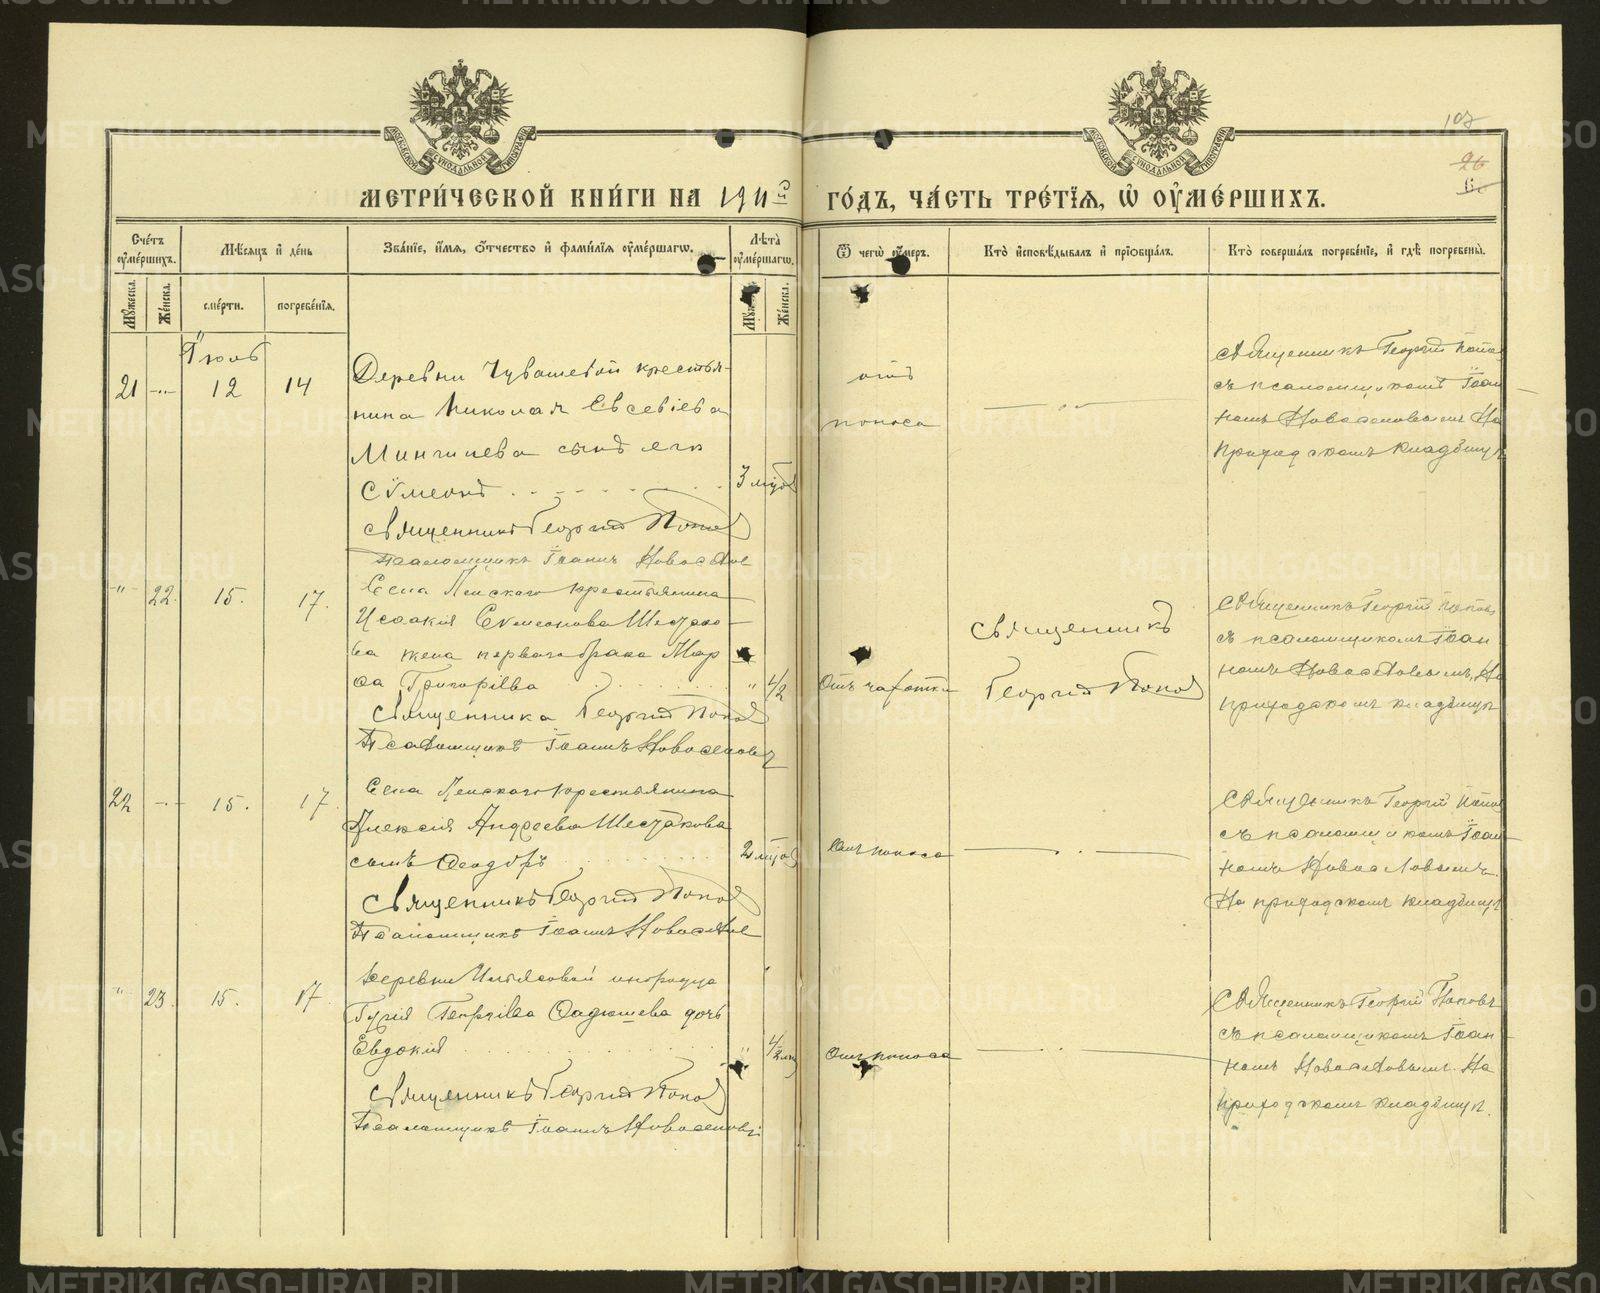 107
26
МЕТРИ́ЧЕСКОЙ КНИ́ГИ НА 1911 ГО́ДЪ, ЧА́СТЬ ТРЕ́ТЇѦ, Ѡ ОУМЕ́РШИХЪ.
Сче́тъ оуме́ршихъ.
Мѣ́сяцъ и де́нь
Зва́нїе, и́мя, ѻ́тчество и фами́лїя оуме́ршагѡ.
Лѣ́та оуме́ршагѡ.
Ѿ чегѡ̀ оу́меръ.
Кто̀ исповѣ́дывалъ и прїѻбща́лъ.
Кто̀ соверша́лъ погребе́нїе, и гдѣ̀ погребены̀.
Му́жеска. Же́нска. сме́рти. погребе́нїя. Же́нска.
Іюль
21 12 14
Деревни Чувашевой крестья-
нина Николая Евсевіева
сынъ его
Сѵмеонъ 3 мѣс
Священникъ Георгій Попов
Псаломщикъ Іоаннъ Новосёлов
отъ
поноса
Священникъ Георгій Попов
съ псаломщикомъ Іоан
номъ Новоселовымъ На
приходскомъ кладбищѣ
" 22. 15. 17.
Села крестьянина
Исаакія Сѵмеонова Шестако-
ва жена перваго брака Мар
ѳа Григоріева " 42
Священникъ Георгій Попов
Псаломщикъ Іоаннъ Новоселовъ
Отъ чахотки
Священникъ
Георгій Попов
Священникъ Георгій Поповъ
съ псаломщикомъ Іоан
номъ Новоселовымъ, На
приходскомъ кладбищѣ
22 15. 17.
Села крестьянина
Алексія Андреева Шестакова
сынъ Ѳеодоръ 2 мѣс
Священникъ Георгій Попов
Псаломщикъ Іоаннъ Новоселов
Отъ поноса
Священникъ Георгій Попов
съ псаломщикомъ Іоан
номъ Новоселовымъ.
На приходскомъ кладбищѣ
" 23. 15. 17.
Деревни инородца
Гурія Георгіева дочь
Евдокія "
Священникъ Георгій Попов
Псаломщикъ Іоаннъ Новоселовъ
Отъ поноса
Священникъ Георгій Поповъ
съ псаломщикомъ Іоан
номъ Новоселовымъ. На
приходскомъ кладбищѣ.
METRIKI.GASO-URAL.RU